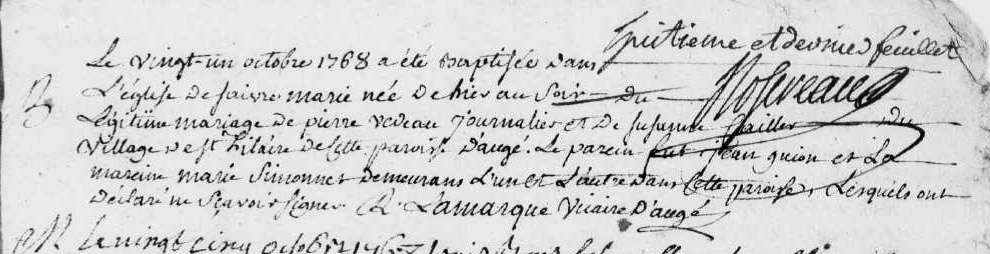 huitieme et dernier feuillet
B
Le vingt-un octobre 1768 a été Baptisée dans
L'église de saivre marie née de hier au Soir du
Légitime mariage de pierre vedeau Journalier et de susanne du
village de st hilaire de cette paroisse d'augé. Le parein fut jean guion et La
mareine marie Simonnet demeurans L'un et L'autre dans cette paroisse, Lesquels ont
déclaré ne sçavoir signer. R. Lamarque Vicaire d'augé
Le vingt cinq octobre